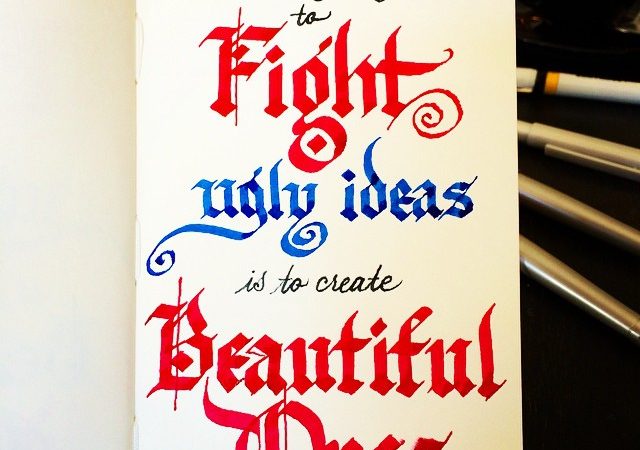 to
Fight
ugly ideas
is to create
Beautiful
Ones